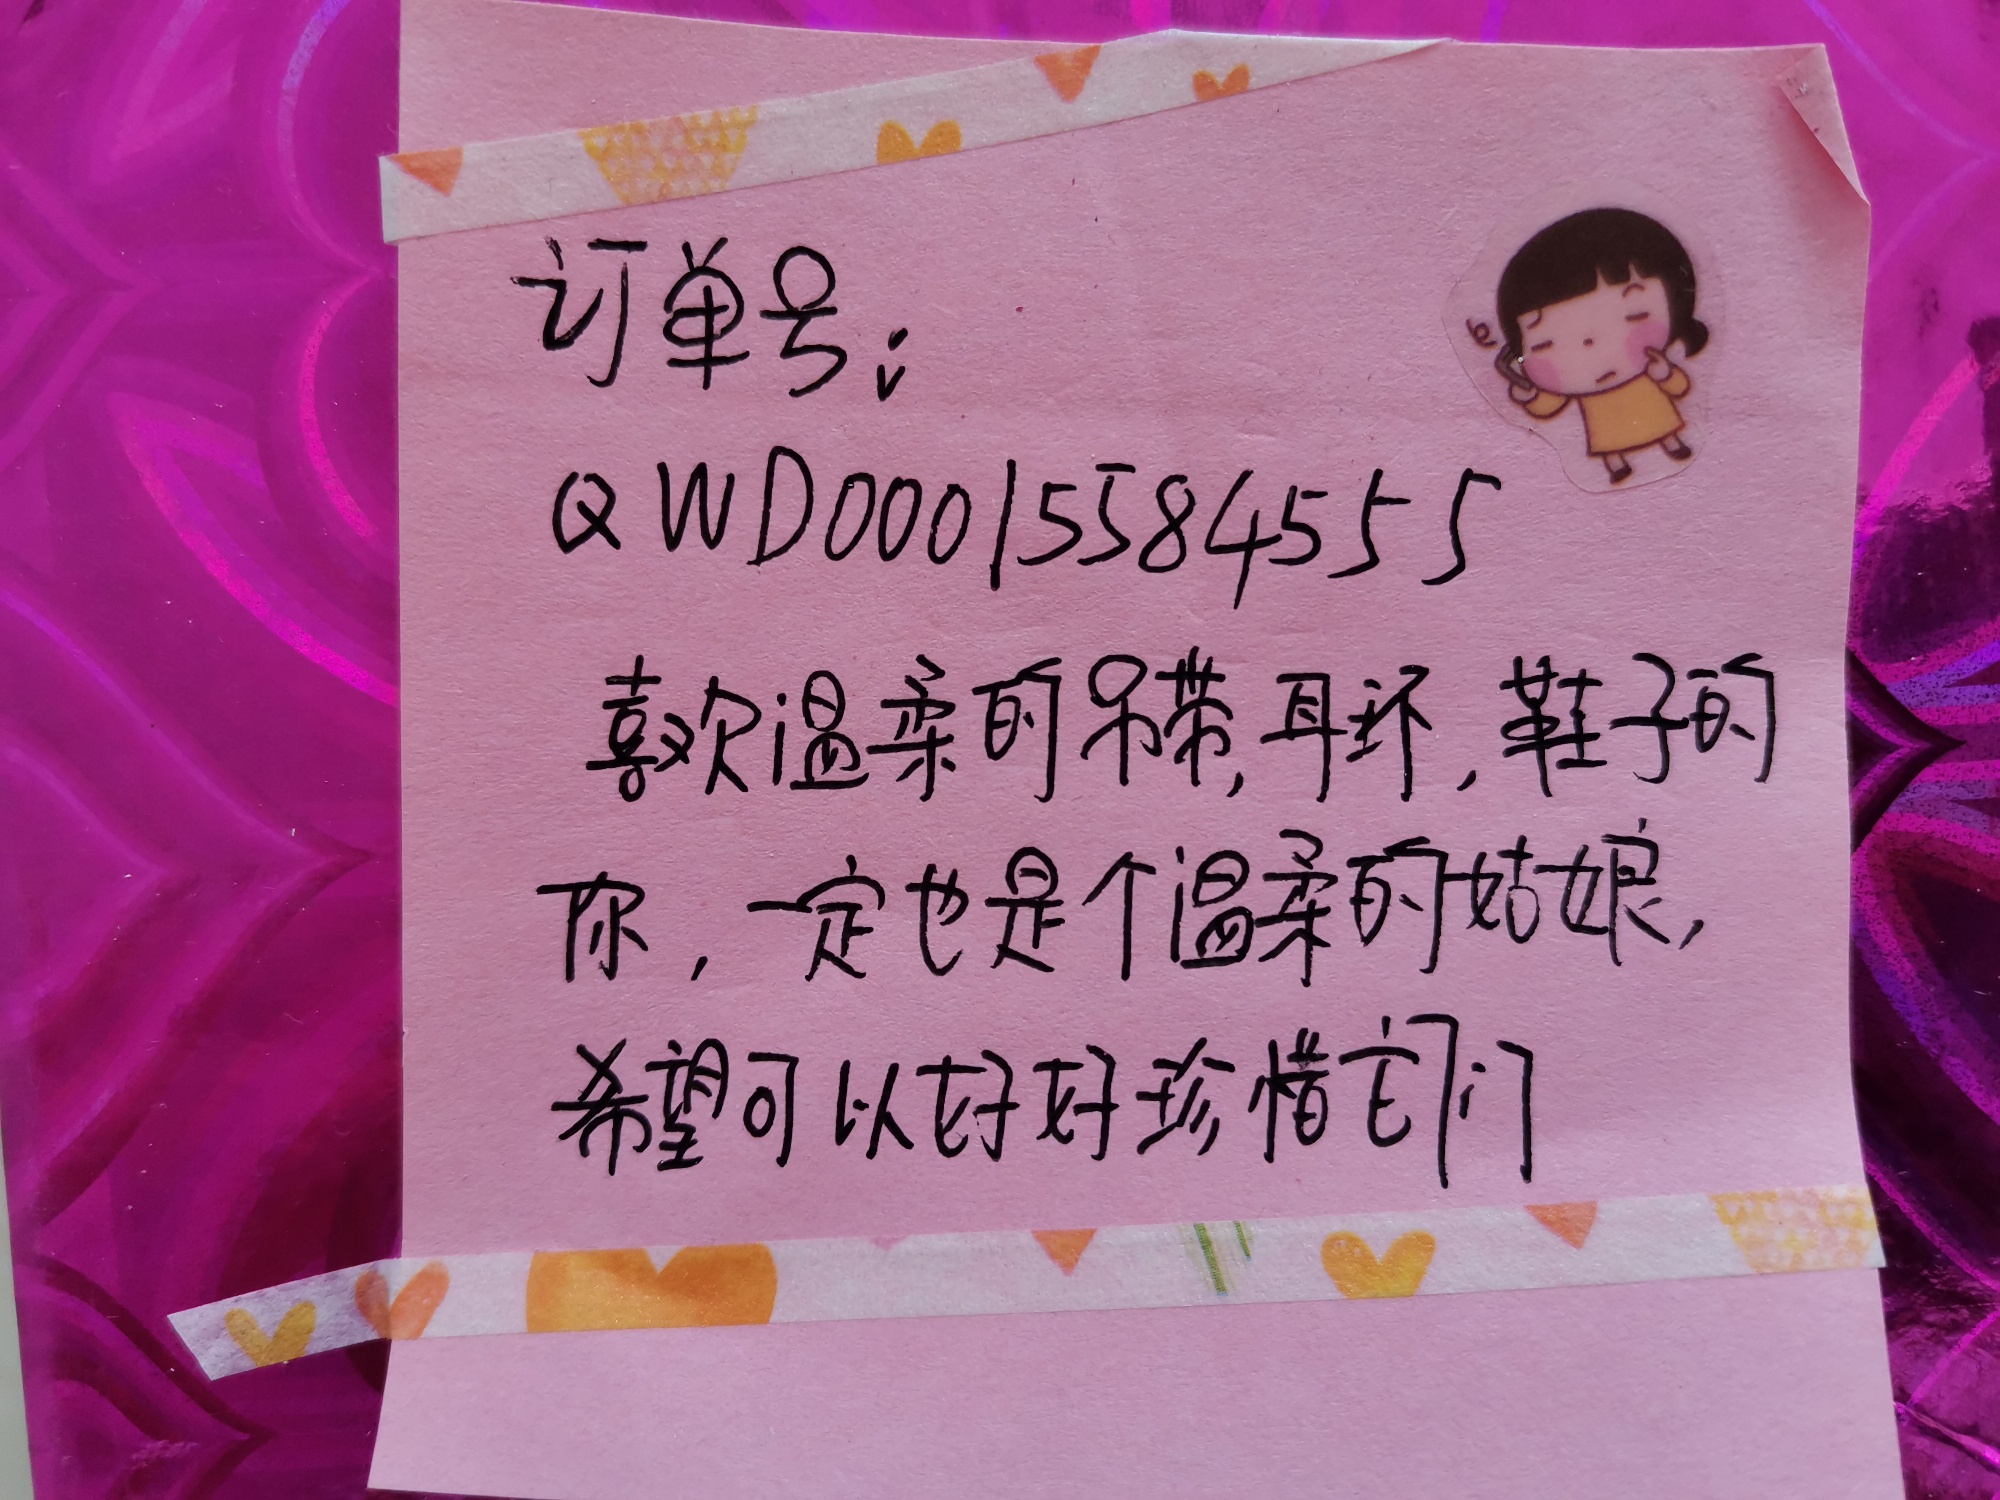 订单号：
QWD00015584555
喜欢温柔的吊带,耳环,鞋子的
你,一定也是个温柔的姑娘,
希望可以好好珍惜它们